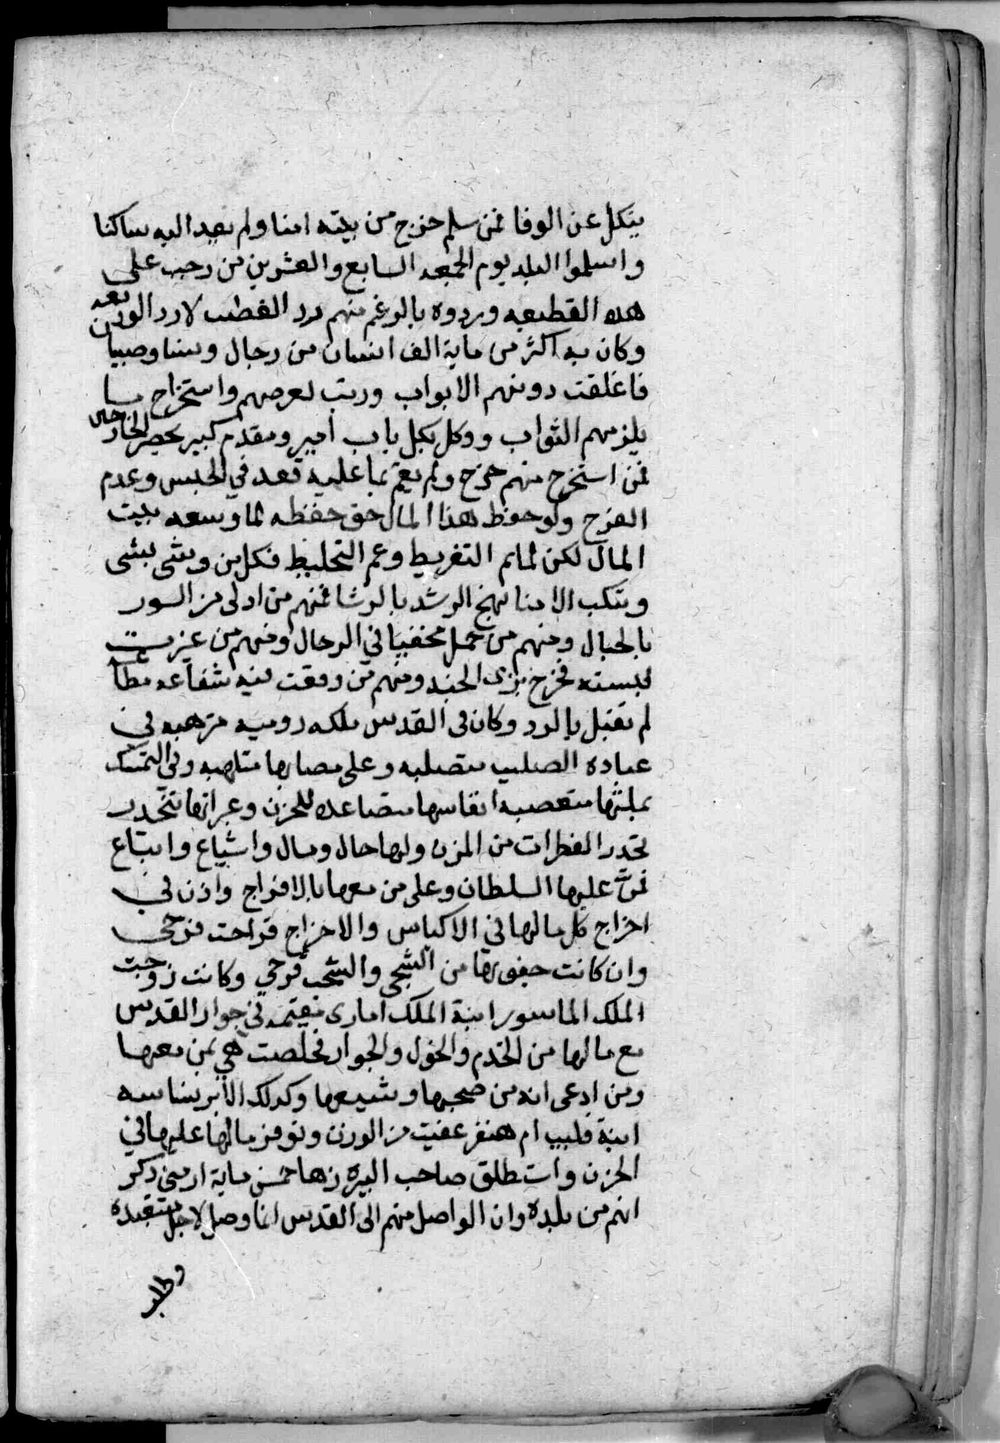 ينكل عن الوفا فمن سلم خرج من بيته امنا ولم يعد اليه ساكنا
واسلموا البلد يوم الجمعه السابع والعشرين من رجب على
هذه القطيعه وردوه بالرغم منهم رد الغصب لا رد الوديعه
وكان به اكثر من ماية الف انسان من رجال ونسا وصبيان
فاغلقت دونهم الابواب ورتب لعرضهم واستخراج ما
يلزمهم النواب ووكل بكل باب امير ومقدم كبير يحصر الخارجين
فمن استخرج منهم خرج ولم يقم بما عليه قعد في الحبس وعدم
الفرج ولو حفظ هذا المال حق حفظه لما وسعه بيت
المال لكن لما تم التفريط وعم التخليط فكل من وشى بشى
وتنكب الامنا نهج الرشد بالرشا فمنهم من ادلى من السور
بالحبال ومنهم من حمل مخفيا في الرحال ومنهم من غيرت
لبسته فخرج بزى الجند ومنهم من وقعت فيه شفاعه مطاعه
لم تقبل بالرد وكان فى القدس ملكه روميه مترهبه في
عباده الصليب متصلبه وعلى مصابها متلهبه وفي التمسك
بملتها متعصبه انفاسها متصاعده للحزن وعبراتها تتحدر
تحدر القطرات من المزن ولها حال ومال واشياع واتباع
فمنَّ عليها السلطان وعلى من معها بالافراج واذن في
اخراج كل مالها في الاكياس والاخراج فراحت فرحى
وان كانت جفونها من الشجى والشجب قرحي وكانت زوجت
الملك الماسور ابنة الملك امارى مقيمه في جوار القدس
مع مالها من الخدم والخول والجوار فخلصت هي بمن معها
ومن ادعى انه من صحبها وشيعها وكذلك الابرنساسه
ابنة فليب ام هنفر عفيت من الوزن وتوفر مالها عليها في
الخزن واستطلق صاحب البيره زها خمس ماية ارمنى ذكر
انهم من بلده وان الواصل منهم الى القدس انما وصل لاجل متعبده
وطلب